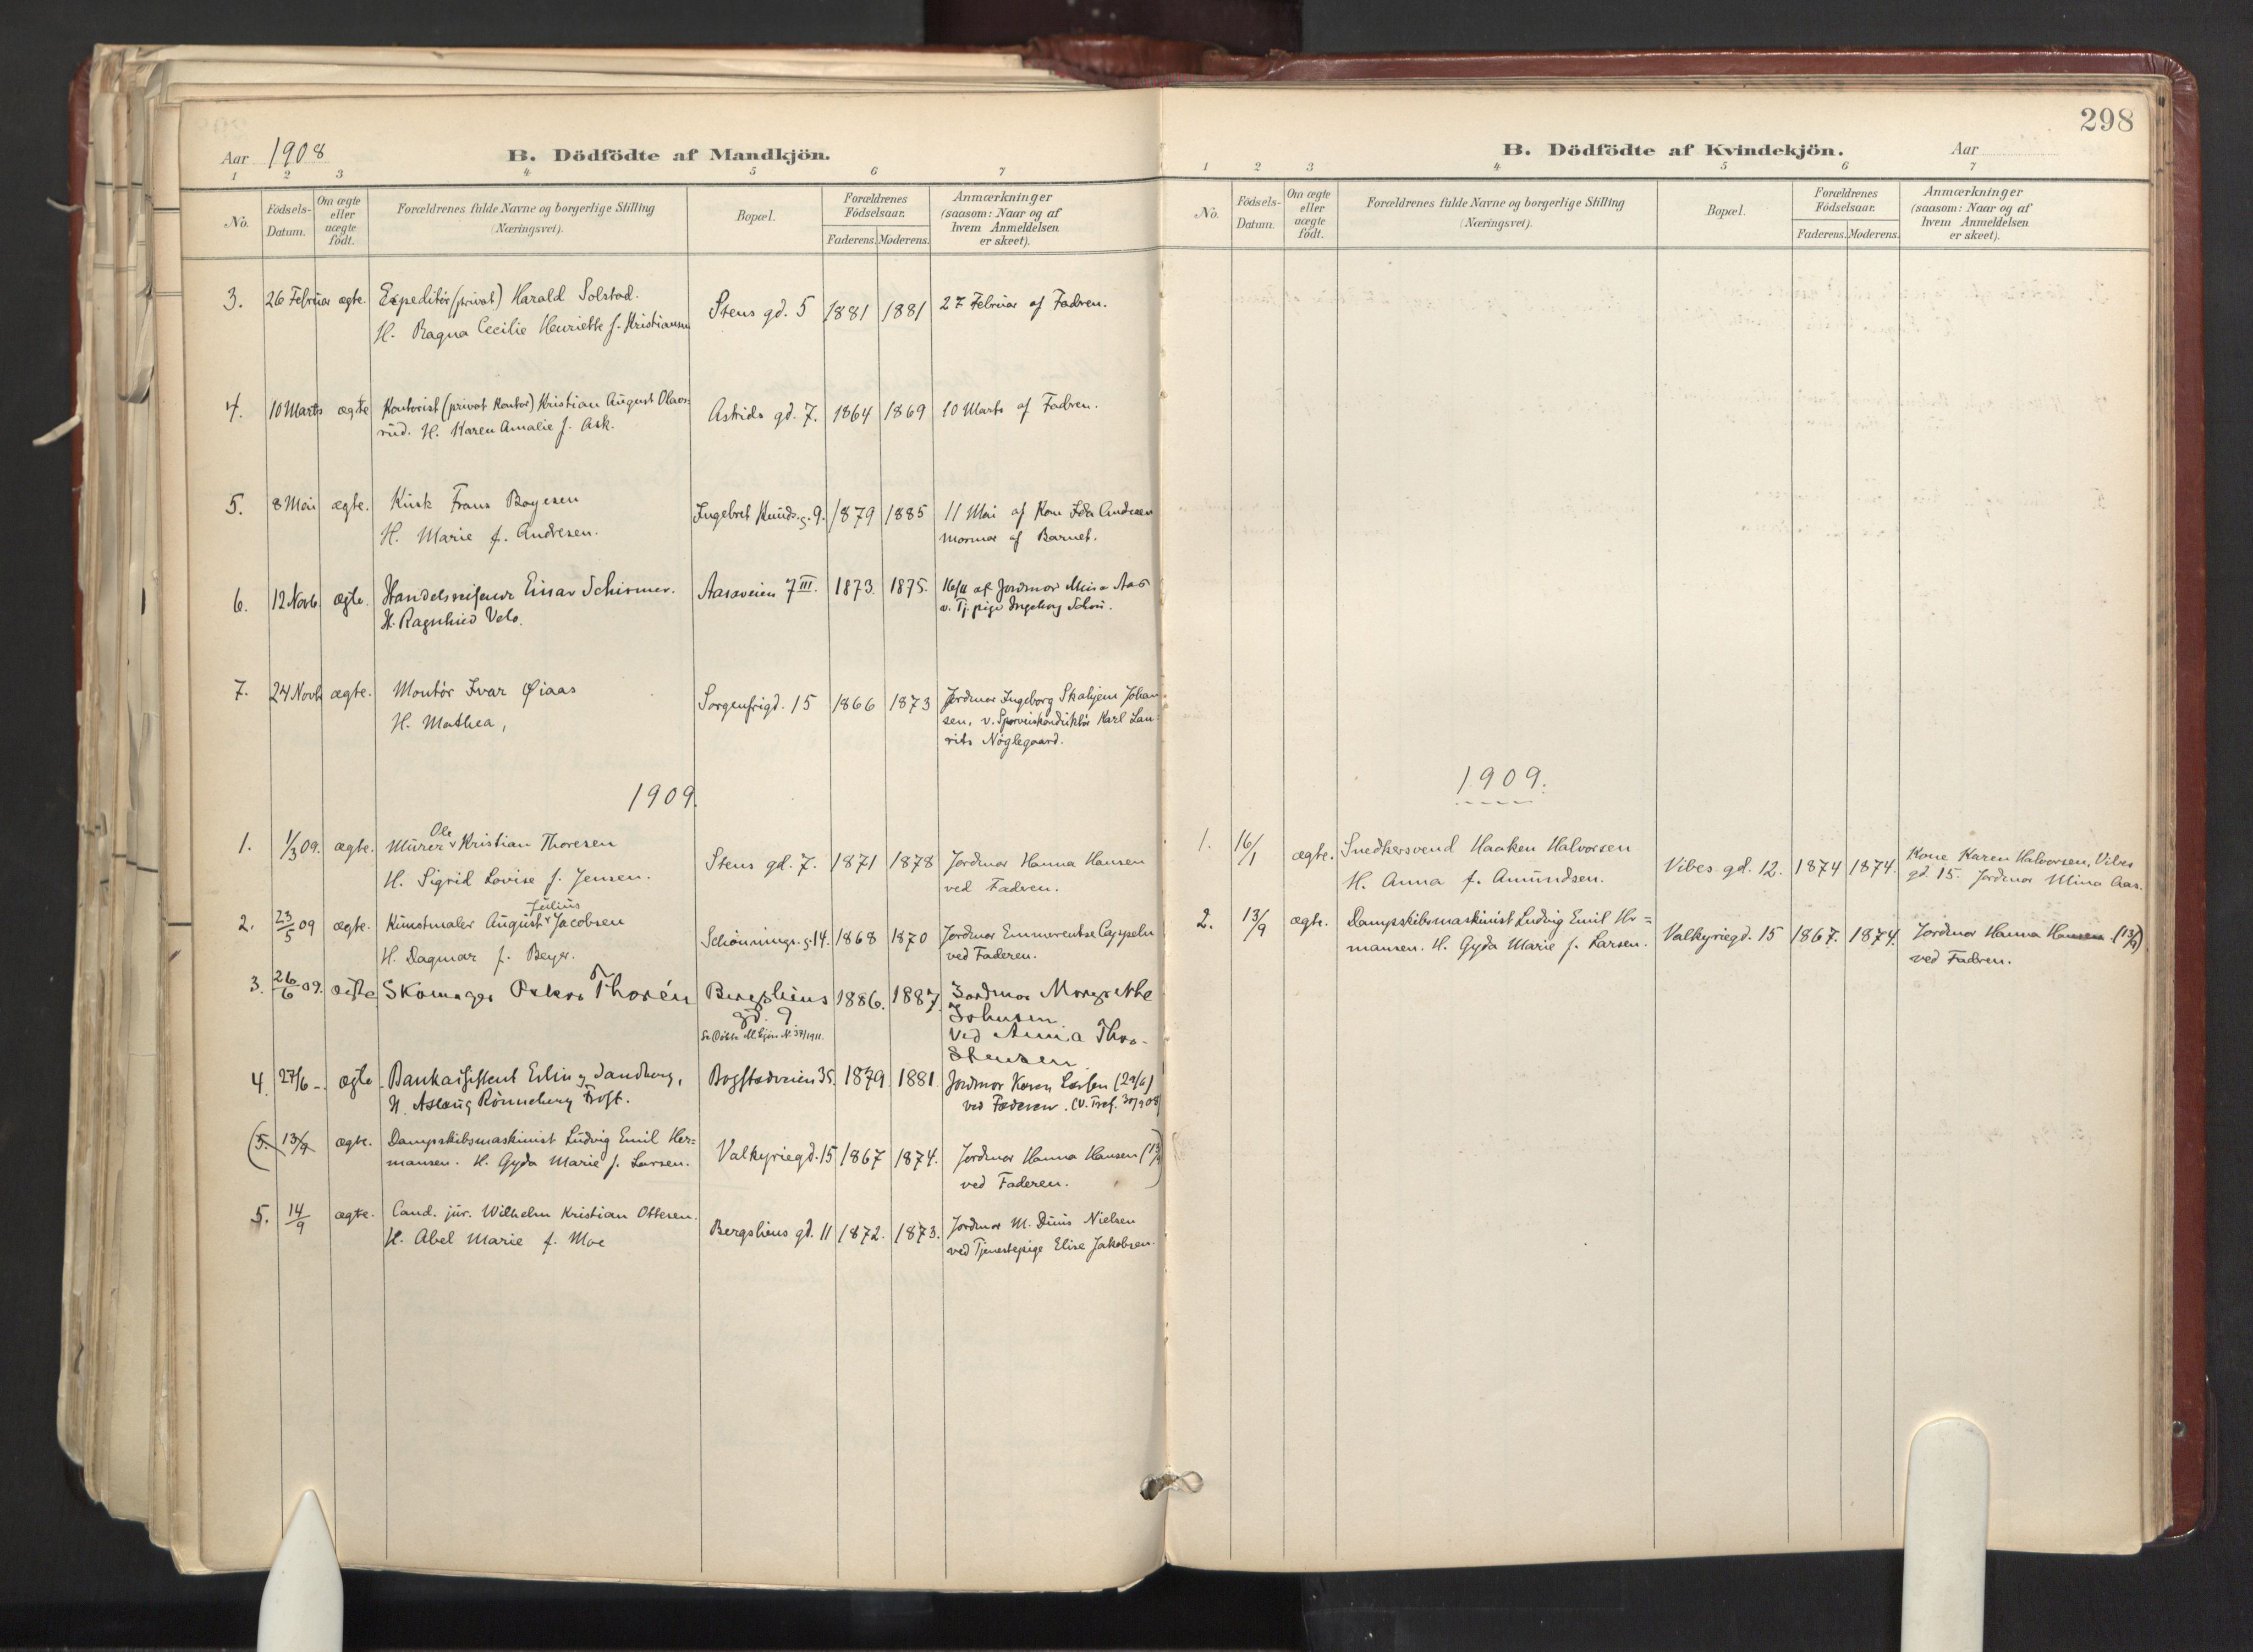 298
Aar 1908
B. Dödfödte af Mandkjön.
1 2 3 4 5 6 7
No.
Födsels-
Datum.
Om ægte
eller
uægte
födt.
Forældrenes fulde Navne og borgerlige Stilling
(Næringsvei).
Bopæl.
Forældrenes
Födselsaar.
Faderens. Moderens.
Anmærkninger
(saasom: Naar og af
hvem Anmeldelsen
er skeet).
3. 26 Februar ægte. Expeditör (privat) Harald Solstad. Stens gd. 5 1881 1881 27 Februar af Fadren.
H. Ragna Cecilie Henriette f. Kristiansen
4. 10 Marts ægte Kontorist (privat Kontor) Kristian August Olavs- Astrids gd. 7. 1864 1869 10 Marts af Fadren.
rud. H. Karen Amalie f. Ask.
5. 8 Mai ægte. Kusk Frans Boyesen Ingebret Knuds. g. 9. 1879 1885 11 Mai af Kone Ida Andresen
H. Marie f. Andresen. mormor af Barnet.
6. 12 Novb. ægte. Handelsreisende Einar Schirmer. Aasaveien 7 III. 1873. 1875. 16/11 af Jordmor Mina Aas
H. Ragnhild Velo. v. Tj. pige Ingeborg
7. 24 Novb ægte. Montör Ivar Øiaas Sorgenfrigd. 15 1866 1873 Jordmor Ingeborg Skahjem Johan
H. Mathea, sen, v. Sporveiskonduktör Karl Lau-
rits Nöglegaard.
1909.
1. 1/3 09. ægte. Murer Ole Kristian Thoresen Stens gd. 7. 1871 1878 Jordmor Hanna Hansen
H. Sigrid Lovise f. Jensen. ved Fadren.
2. 23/5 09 ægte. Kunstmaler August Julius Jacobsen Schönnings. g. 14. 1868 1870 Jordmor Emmerentse Cappelen
H. Dagmar f. Beyer. ved Faderen.
3. 26/6 09. ægte Skomager Oskar Thorén Bergsliens 1886. 1887. Jordmor Margrethe
gd. 9 Johnsen
Se Döbte M. Kjön N. 37/1911. Ved Annia Thor-
stensen
4. 27/6 - ægte Bankassistent Erling Sandberg, Bogstadveien 35. 1879 1881. Jordmor Karen Larsen (29/6)
H. Aslaug Rönneberg Frost. ved Faderen. (V. Tref. 30/9 08)
(5. 13/9 ægte. Dampskibsmaskinist Ludvig Emil Her= Valkyriegd. 15 1867 1874. Jordmor Hanna Hansen (13/9)
mansen. H. Gyda Marie f. Larsen. ved Faderen. )
5. 14/9 ægte. Cand. jur. Wilhelm Kristian Ottesen. Bergsliens gd. 11 1872. 1873. Jordmor M. Duus Nielsen
H. Abel Marie f. Moe ved Tjenestepige Elise Jakobsen.
B. Dödfödte af Kvindekjön.
Aar
1 2 3 4 5 6 7
No.
Födsels-
Datum.
Om ægte
eller
uægte
födt.
Forældrenes fulde Navne og borgerlige Stilling
(Næringsvei).
Bopæl.
Forældrenes
Födselsaar.
Faderens. Moderens.
Anmærkninger
(saasom: Naar og af
hvem Anmeldelsen
er skeet).
1909.
1. 16/1 ægte. Snedkersvend Haaken Halvorsen Vibes gd. 12. 1874 1874. Kone Karen Halvorsen, Vibes
H. Anna f. Amundsen. gd. 15. Jordmor Mina Aas.
2. 13/9 ægte. Dampskibsmaskinist Ludvig Emil Her= Valkyriegd. 15 1867. 1874. Jordmor Hanna Hansen (13/9)
mansen. H. Gyda Marie f. Larsen. ved Fadren.